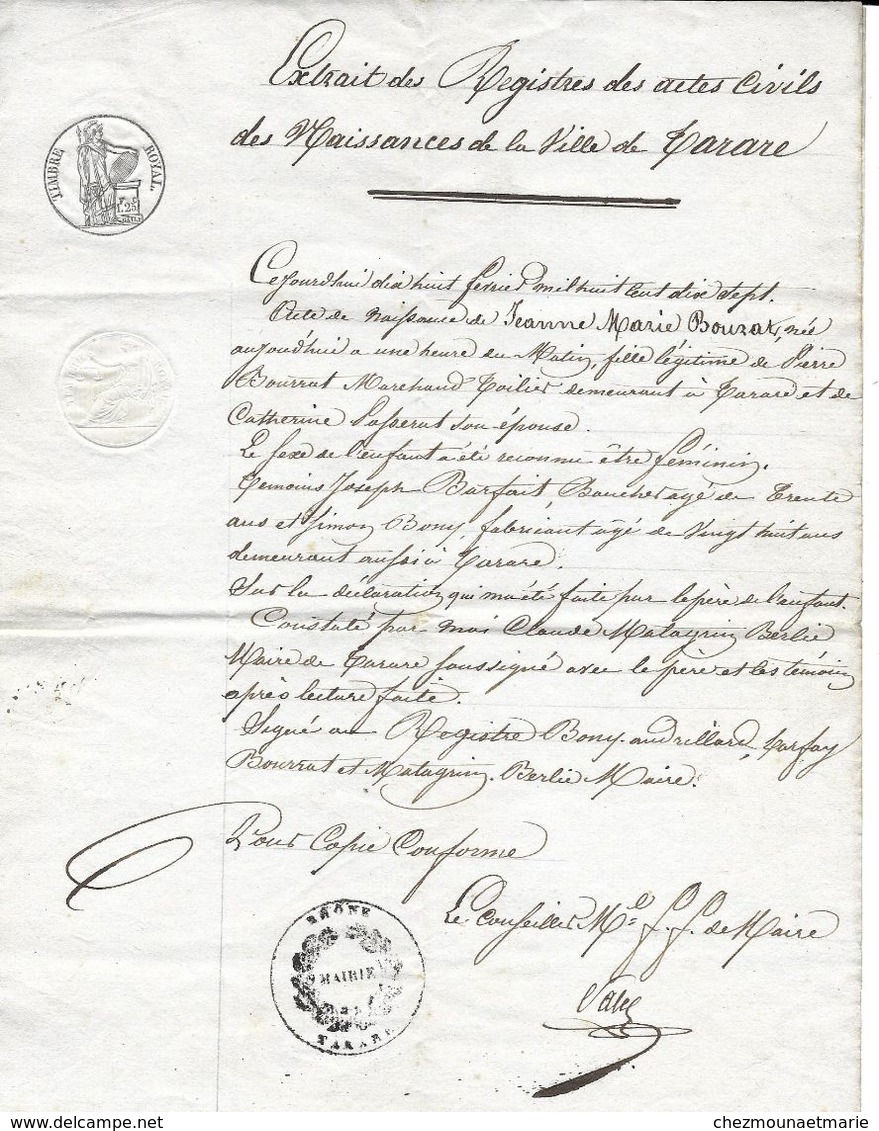 Extrait des Registres des actes Civils
des Naissances de la Ville de Tarare
TIMBRE ROYAL.
1.25
Cejourdhui dix huit fevrier mil huit Cent dix sept.
Acte de naissance de Jeanne Marie Bourrat, née
aujourd'hui a une heure du Matin, fille légitime de Pierre
Bourrat Marchand Toilier demeurant à Tarare et de
Catherine Passerat son épouse.
Le sexe de l'enfant a été reconnu être féminin.
Temoins Joseph Barfait, Boucher agé de Trente
ans et Simon Bony, fabricant âgé de Vingt huit ans
demeurant aussi à Tarare.
Sur la déclaration qui m'a été faite par le père de l'enfant.
Constaté par moi Claude Matagrin Berlie
Maire de Tarare soussigné avec le père et les témoins
après lecture faite.
Signé au Registre Bony-andrillard,
Bourrat et Matagrin-Berlie Maire.
Pour Copie Conforme
Le Conseiller M.l f. f. de Maire
RHÔNE
MAIRIE
TARARE
chezmounaetmarie